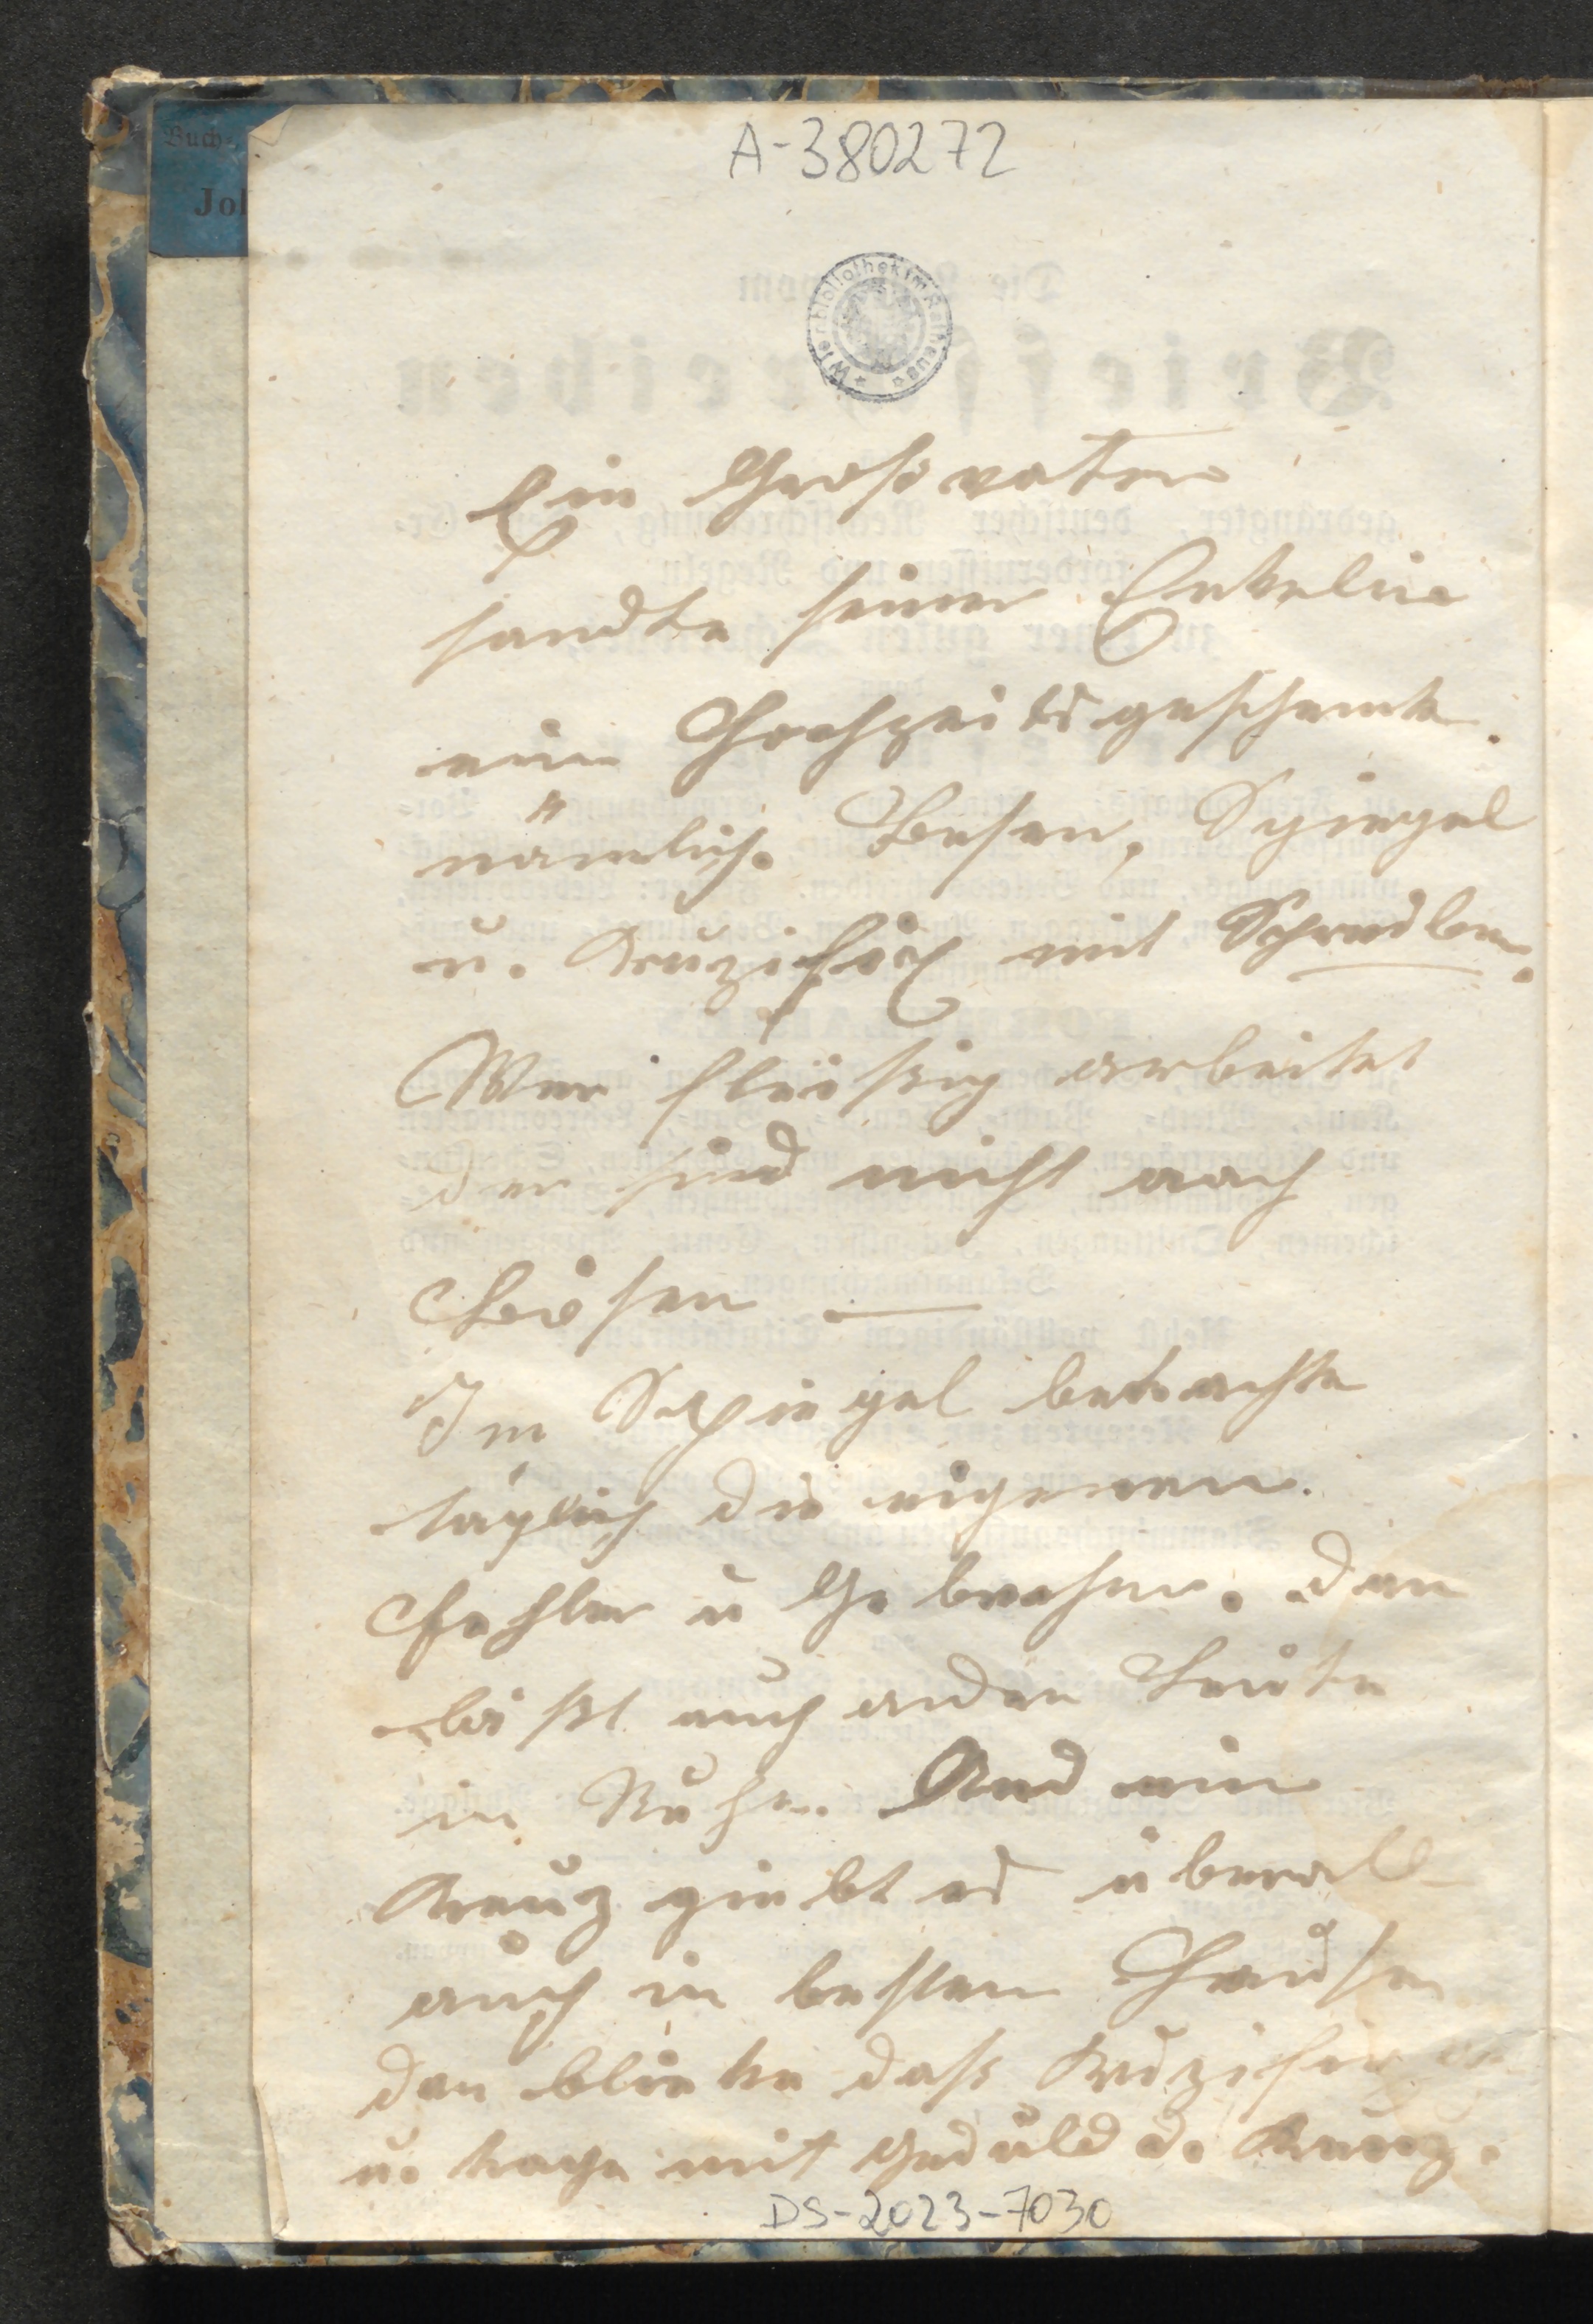 A-380272
Buch-
Joh
Wienbibliothek im Rathaus
Ein Großvater
sandte seiner Enkelin
ein Hochzeitsgeschenk.
nämlich. Besen, Spiegel
u. Kruzifix mit
Wer fleißig arbeitet
der sind nicht nach
Bösen —
Im Spiegel betrachte
täglich die eigenen
Fehler u Gebrechen. dan
läßt auch andere Leute
in Ruhe. Und ein
Kreuz giebt es überall
auch in besten Hause
dan blicke daß Kruzifix an
u. trage mit Geduld d. Kreuz.
DS-2023-7030